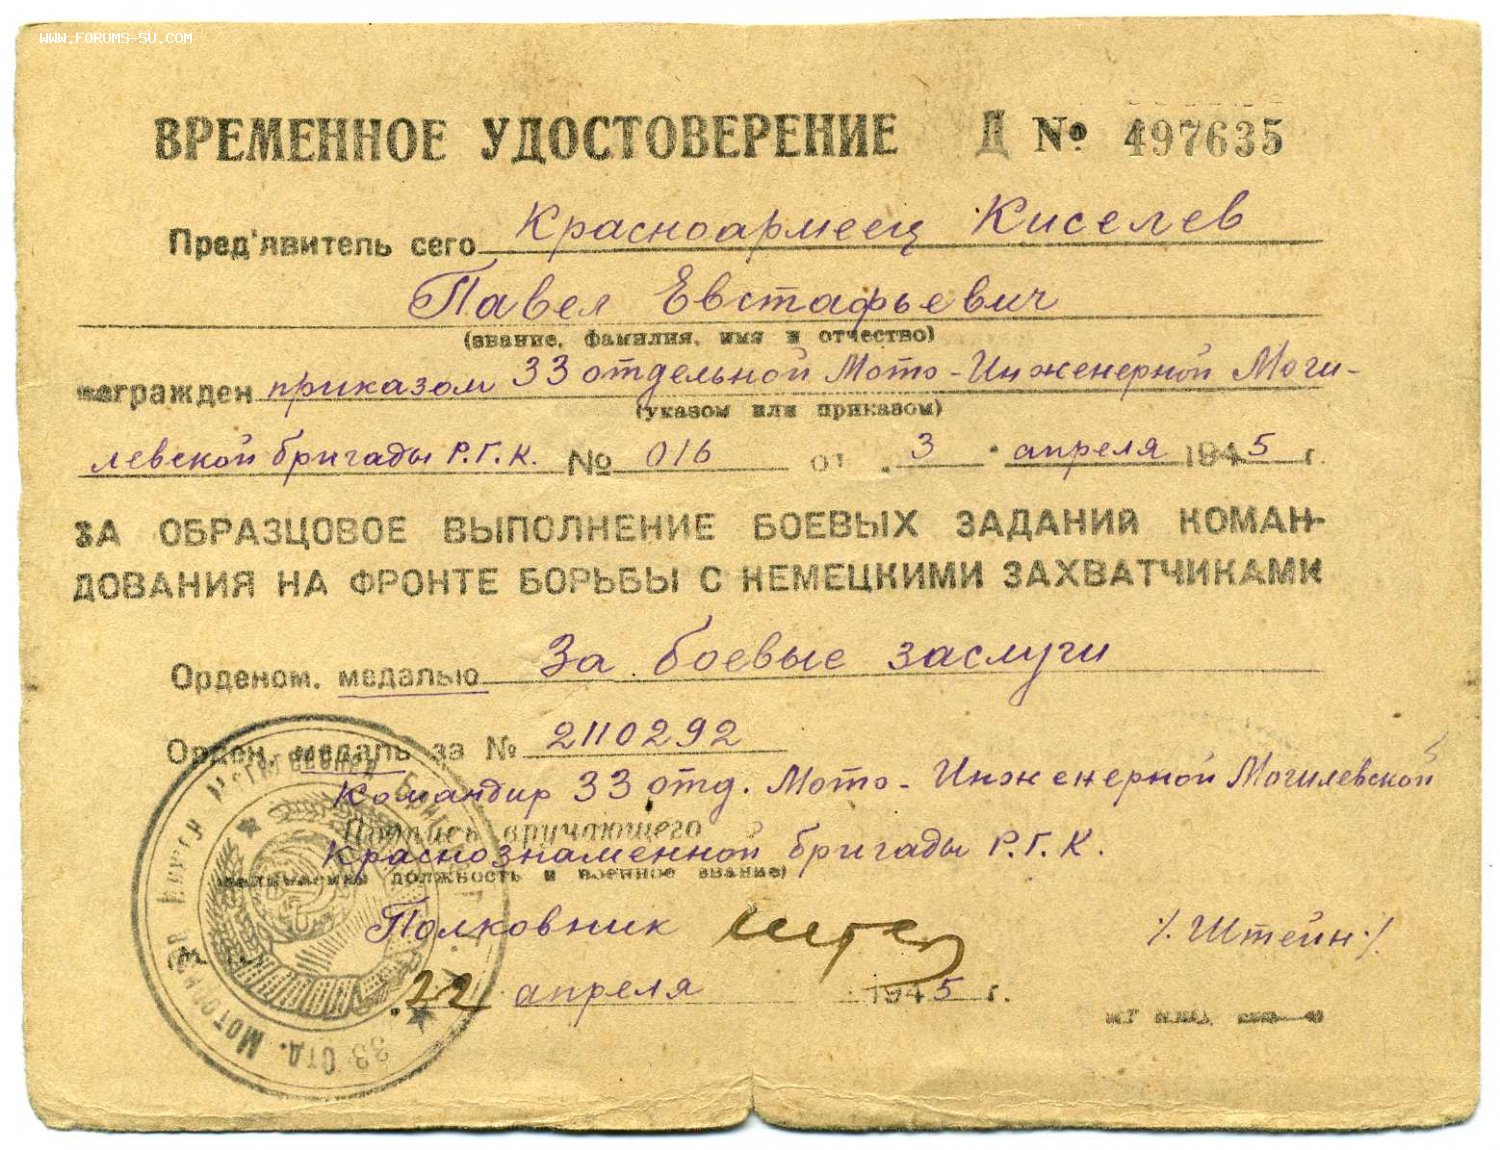 WWW.FORUMS-SU.COM
ВРЕМЕННОЕ УДОСТОВЕРЕНИЕ Д № 497635
Пред'явитель сего Красноармеец Киселев
Павел Евстафьевич
(звание, фамилия, имя и отчество)
награжден приказом 33 отдельной Мото-Инженерной Моги-
(указом или приказом)
левской бригады Р.Г.К. № 016 от 3 апреля 1945 г.
ЗА ОБРАЗЦОВОЕ ВЫПОЛНЕНИЕ БОЕВЫХ ЗАДАНИЙ КОМАН-
ДОВАНИЯ НА ФРОНТЕ БОРЬБЫ С НЕМЕЦКИМИ ЗАХВАТЧИКАМИ
Орденом, медалью За боевые заслуги
Орден, медаль за № 2110292
Командир 33 отд. Мото-Инженерной Могилевской
Подпись вручающего
Краснознаменной бригады Р.Г.К.
должность и военное звание)
Полковник /Штейн/
22 апреля 1945 г.
33 Отд. Мотор